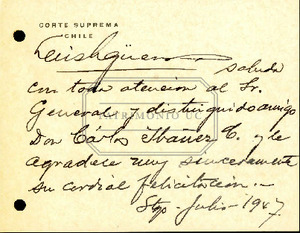 CORTE SUPREMA
CHILE
saluda
con toda atencion al Sr.
General y distinguido amigo
Don Cárlos Ibáñez C. y le
agradece muy sinceramente
su cordial felicitación.-
Stgo - Julio - 1947
PATRIMONIO UC